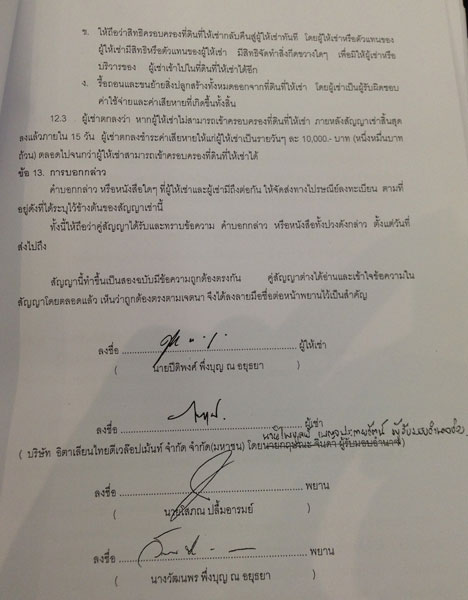 ข. ให้ถือว่าสิทธิครอบครองที่ดินที่ให้เช่ากลับคืนสู่ผู้ให้เช่าทันที โดยผู้ให้เช่าหรือตัวแทนของ
ผู้ให้เช่ามีสิทธิหรือตัวแทนของผู้ให้เช่า มีสิทธิจัดทำสิ่งกีดขวางใดๆ เพื่อมิให้ผู้เช่าหรือ
บริวารของ ผู้เช่าเข้าไปในที่ดินที่ให้เช่าได้อีก
ง. รื้อถอนและขนย้ายสิ่งปลูกสร้างทั้งหมดออกจากที่ดินที่ให้เช่า โดยผู้เช่าเป็นผู้รับผิดชอบ
ค่าใช้จ่ายและค่าเสียหายที่เกิดขึ้นทั้งสิ้น
12.3 ผู้เช่าตกลงว่า หากผู้ให้เช่าไม่สามารถเข้าครอบครองที่ดินที่ให้เช่า ภายหลังสัญญาเช่าสิ้นสุด
ลงแล้วภายใน 15 วัน ผู้เช่าตกลงชำระค่าเสียหายให้แก่ผู้ให้เช่าเป็นรายวันๆ ละ 10,000.- บาท (หนึ่งหมื่นบาท
ถ้วน) ตลอดไปจนกว่าผู้ให้เช่าสามารถเข้าครอบครองที่ดินที่ให้เช่าได้
ข้อ 13. การบอกกล่าว
คำบอกกล่าว หรือหนังสือใดๆ ที่ผู้ให้เช่าและผู้เช่ามีถึงต่อกัน ให้จัดส่งทางไปรษณีย์ลงทะเบียน ตามที่
อยู่ดังที่ได้ระบุไว้ข้างต้นของสัญญาเช่านี้
ทั้งนี้ให้ถือว่าคู่สัญญาได้รับและทราบข้อความ คำบอกกล่าว หรือหนังสือทั้งปวงดังกล่าว ตั้งแต่วันที่
ส่งไปถึง
สัญญานี้ทำขึ้นเป็นสองฉบับมีข้อความถูกต้องตรงกัน คู่สัญญาต่างได้อ่านและเข้าใจข้อความใน
สัญญาโดยตลอดแล้ว เห็นว่าถูกต้องตรงตามเจตนา จึงได้ลงลายมือชื่อต่อหน้าพยานไว้เป็นสำคัญ
ลงชื่อ ........................................ ผู้ให้เช่า
( นายปิติพงศ์ พึ่งบุญ ณ อยุธยา )
ลงชื่อ ........................................ ผู้เช่า
( บริษัท อิตาเลียนไทยดีเวล๊อปเม้นท์ จำกัด จำกัด(มหาชน) โดยนายกฤษณะ จินดา ผู้รับมอบอำนาจ )
ลงชื่อ ........................................ พยาน
( นายโสภณ ปลื้มอารมย์ )
ลงชื่อ ........................................ พยาน
( นางวัฒนพร พึ่งบุญ ณ อยุธยา )